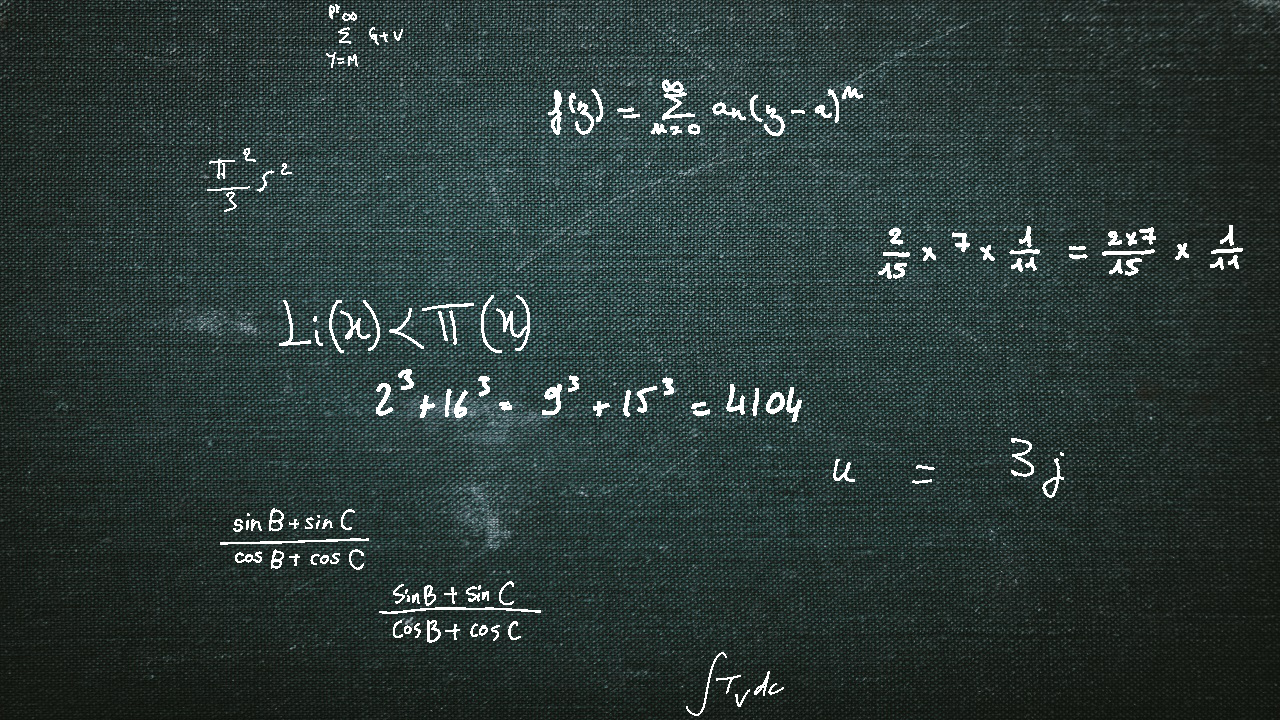 \sum_{Y=M}^{p^r \infty} G+V
f(z) = \sum_{n=0}^{\infty} a_n(z-a)^n
\frac{\pi^2}{3} s^2
\frac{2}{15} \times 7 \times \frac{1}{11} = \frac{2 \times 7}{15} \times \frac{1}{11}
Li(x) < \pi(x)
2^3 + 16^3 = 9^3 + 15^3 = 4104
u = 3j
\frac{\sin B + \sin C}{\cos B + \cos C}
\frac{\sin B + \sin C}{\cos B + \cos C}
\int T_v dc